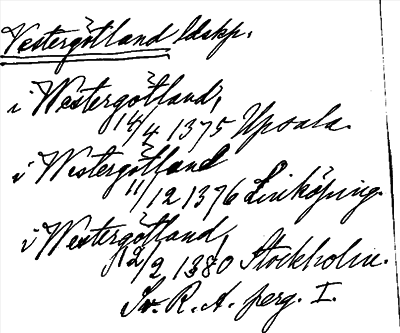 Vestergötland ldskp.
i Westergötland,
14/4 1375 Upsala.
i Westergötland
11/12 1376 Linköping.
i Westergötland,
12/2 1380 Stockholm.
Sv. R. A. perg. I.